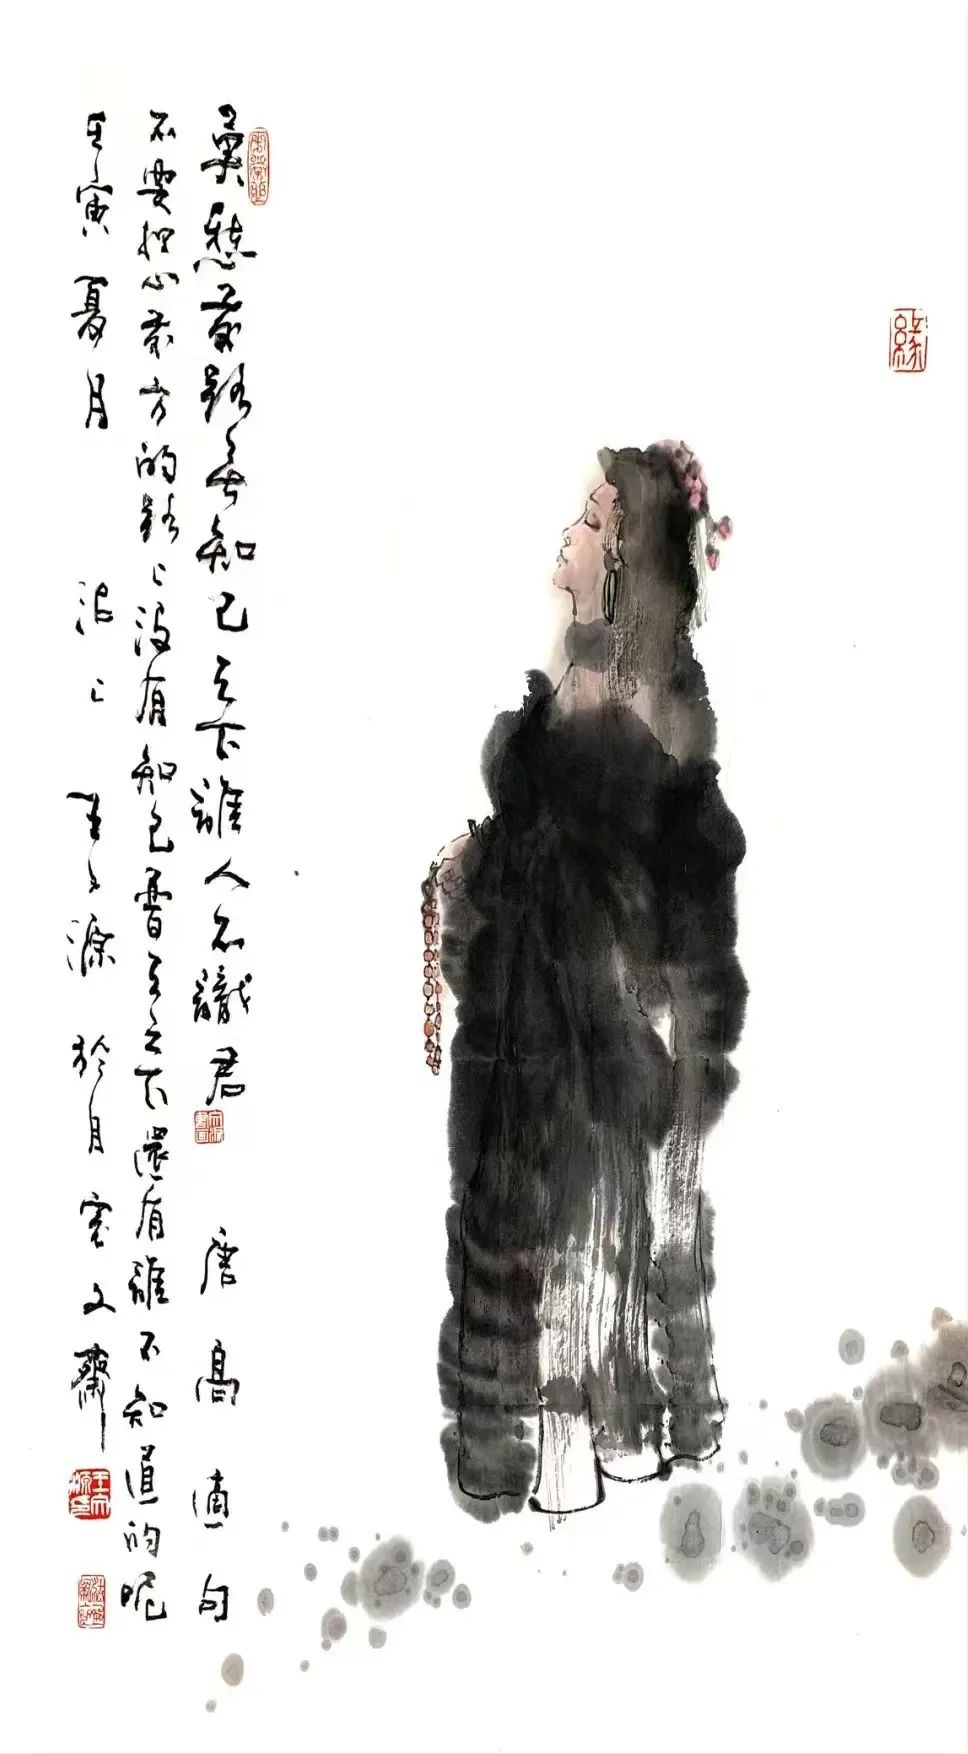 緣
莫愁前路無知己天下誰人不識君 唐高適句
不要担心前方的路上没有知己普天之下還有誰不知道的呢
壬寅夏月 沽上 王源於文齋